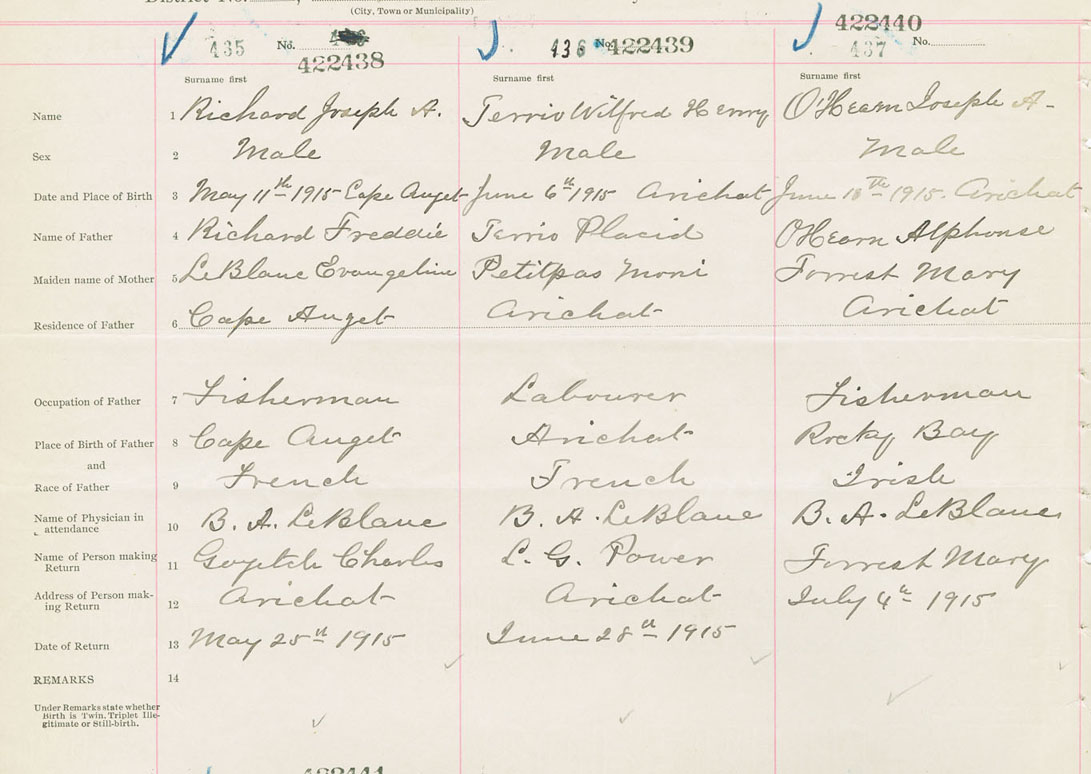 (City, Town or Municipality)
435 No. 422438
436 No. 422439
422440 437 No.
Surname first Surname first Surname first
Name 1 Richard Joseph A. Terrio Wilfred Henry O'Hearn Joseph A-
Sex 2 Male Male Male
Date and Place of Birth 3 May 11th 1915 Cape Auget June 6th 1915 Arichat June 18th 1915. Arichat
Name of Father 4 Richard Freddie Terrio Placid O'Hearn Alphonse
Maiden name of Mother 5 LeBlanc Evangeline Petitpas Moni Forrest Mary
Residence of Father 6 Cape Auget Arichat Arichat
Occupation of Father 7 Fisherman Labourer Fisherman
Place of Birth of Father 8 Cape Auget Arichat Rocky Bay
and
Race of Father 9 French French Irish
Name of Physician in
attendance 10 B. A. LeBlanc B. A. LeBlanc B. A. LeBlanc
Name of Person making
Return 11 Goyetch Charles L. G. Power Forrest Mary
Address of Person mak-
ing Return 12 Arichat Arichat July 4th 1915
Date of Return 13 May 25th 1915 June 28th 1915
REMARKS 14
Under Remarks state whether
Birth is Twin, Triplet Ille-
gitimate or Still-birth.